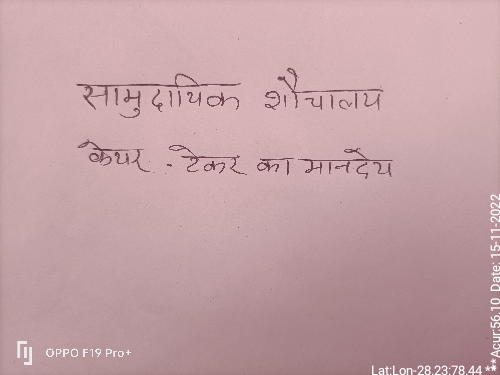 सामुदायिक शौचालय
केयर - टेकर का मानदेय
OPPO F19 Pro+
Lat:Lon-28.23:78.44 **Acur:56.10 Date: 15-11-2022